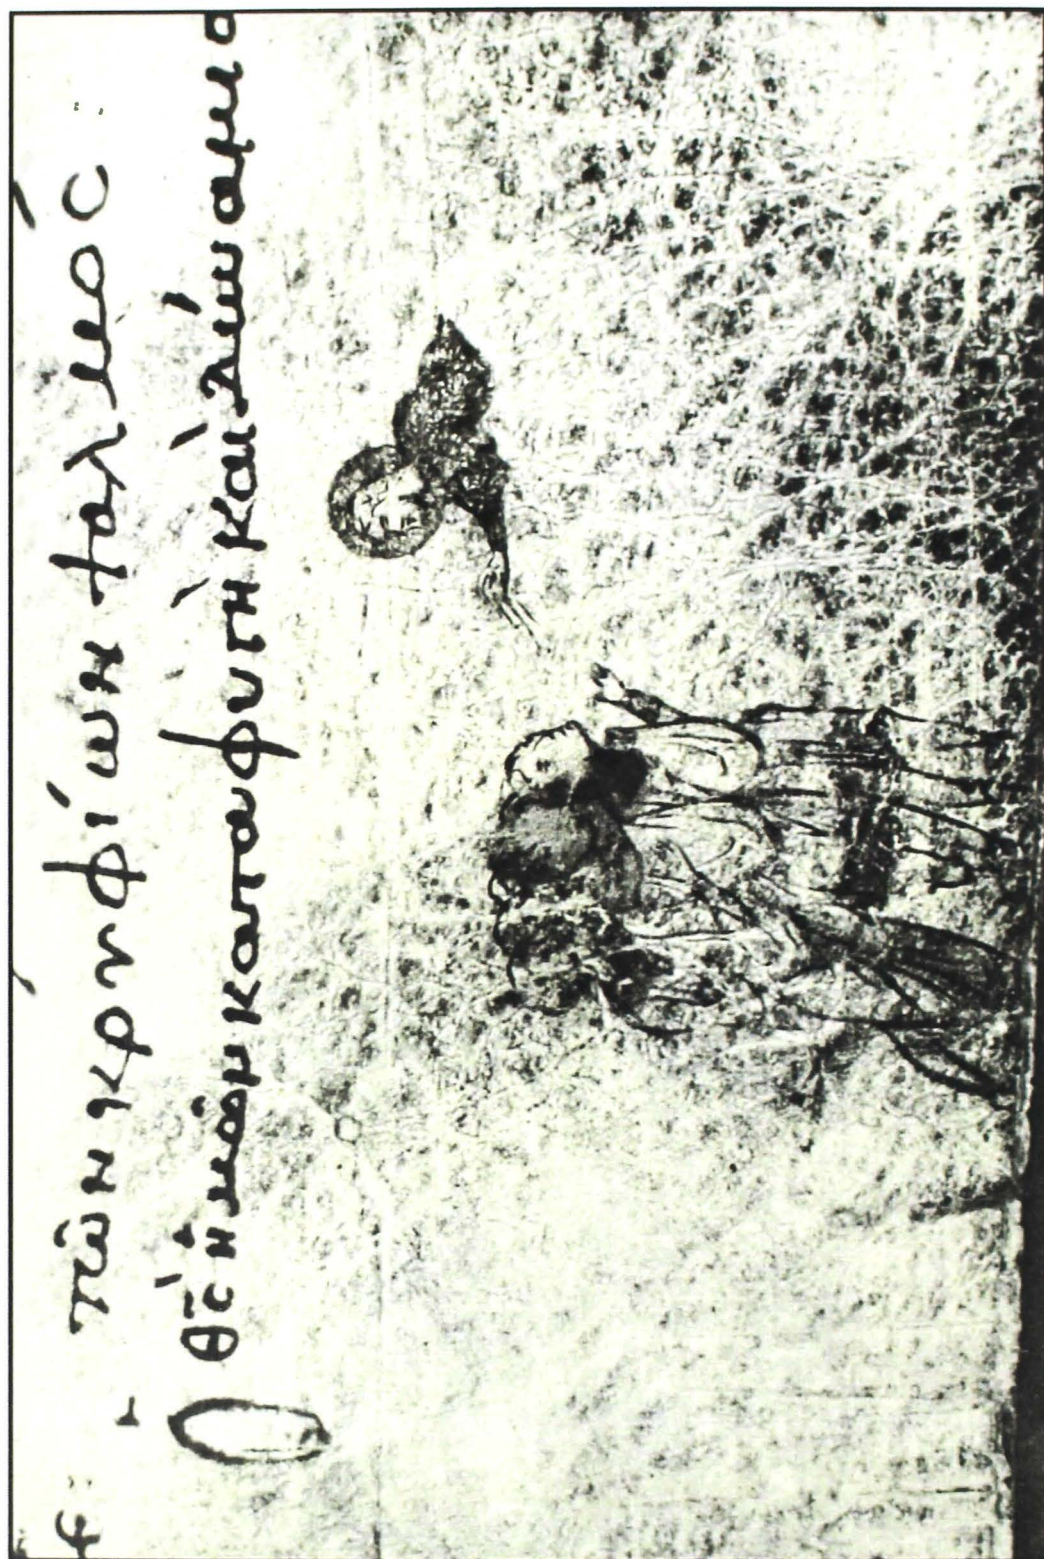 τῶν κρυφίων ψαλμὸς
Ὁ θ̅ς̅ ἡμῶν καταφυγὴ καὶ δύναμις